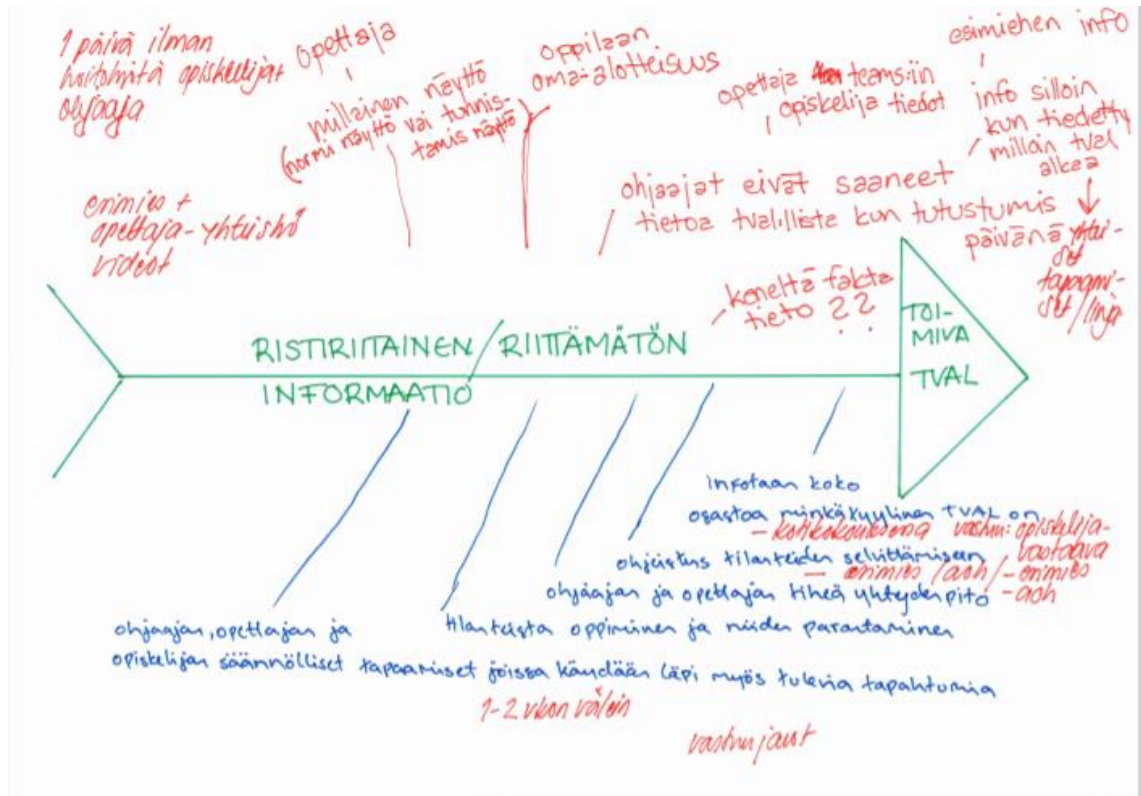 1 päivä ilman
hoitohnitä opiskelijat
ohjaaja
opettaja
millainen näyttö
(normi näyttö vai tunnis-
tamis näyttö
oppilaan
oma-alotteisuus
opettaja teams:iin
opiskelija tiedot
esimiehen info
info silloin
kun tiedetty
milloin tval
alkaa
yhtei-
set
tapaami-
set/linja
esimies +
opettaja-yhteistyö
videot
ohjaajat eivät saaneet
tietoa tvalilliste kun tutustumis
päivänä
koneltä fakta
tieto ??
RISTIRIITAINEN / RIITTÄMÄTÖN
INFORMAATIO
TOI-
MIVA
TVAL
infotaan koko
osastoa minkätyylinen TVAL on
- kotikokouksena vastuu: opiskelija-
vastaava
ohjeistus tilanteiden selvittämiseen
- esimies /aoh/ - esimies
- aoh
ohjaajan ja opettajan tiheä yhteydenpito
tilanteista oppiminen ja niiden parantaminen
ohjaajan, opettajan ja
opiskelijan säännölliset tapaamiset joissa käydään läpi myös tulevia tapahtumia
1-2 vkon välein
vastuujaot